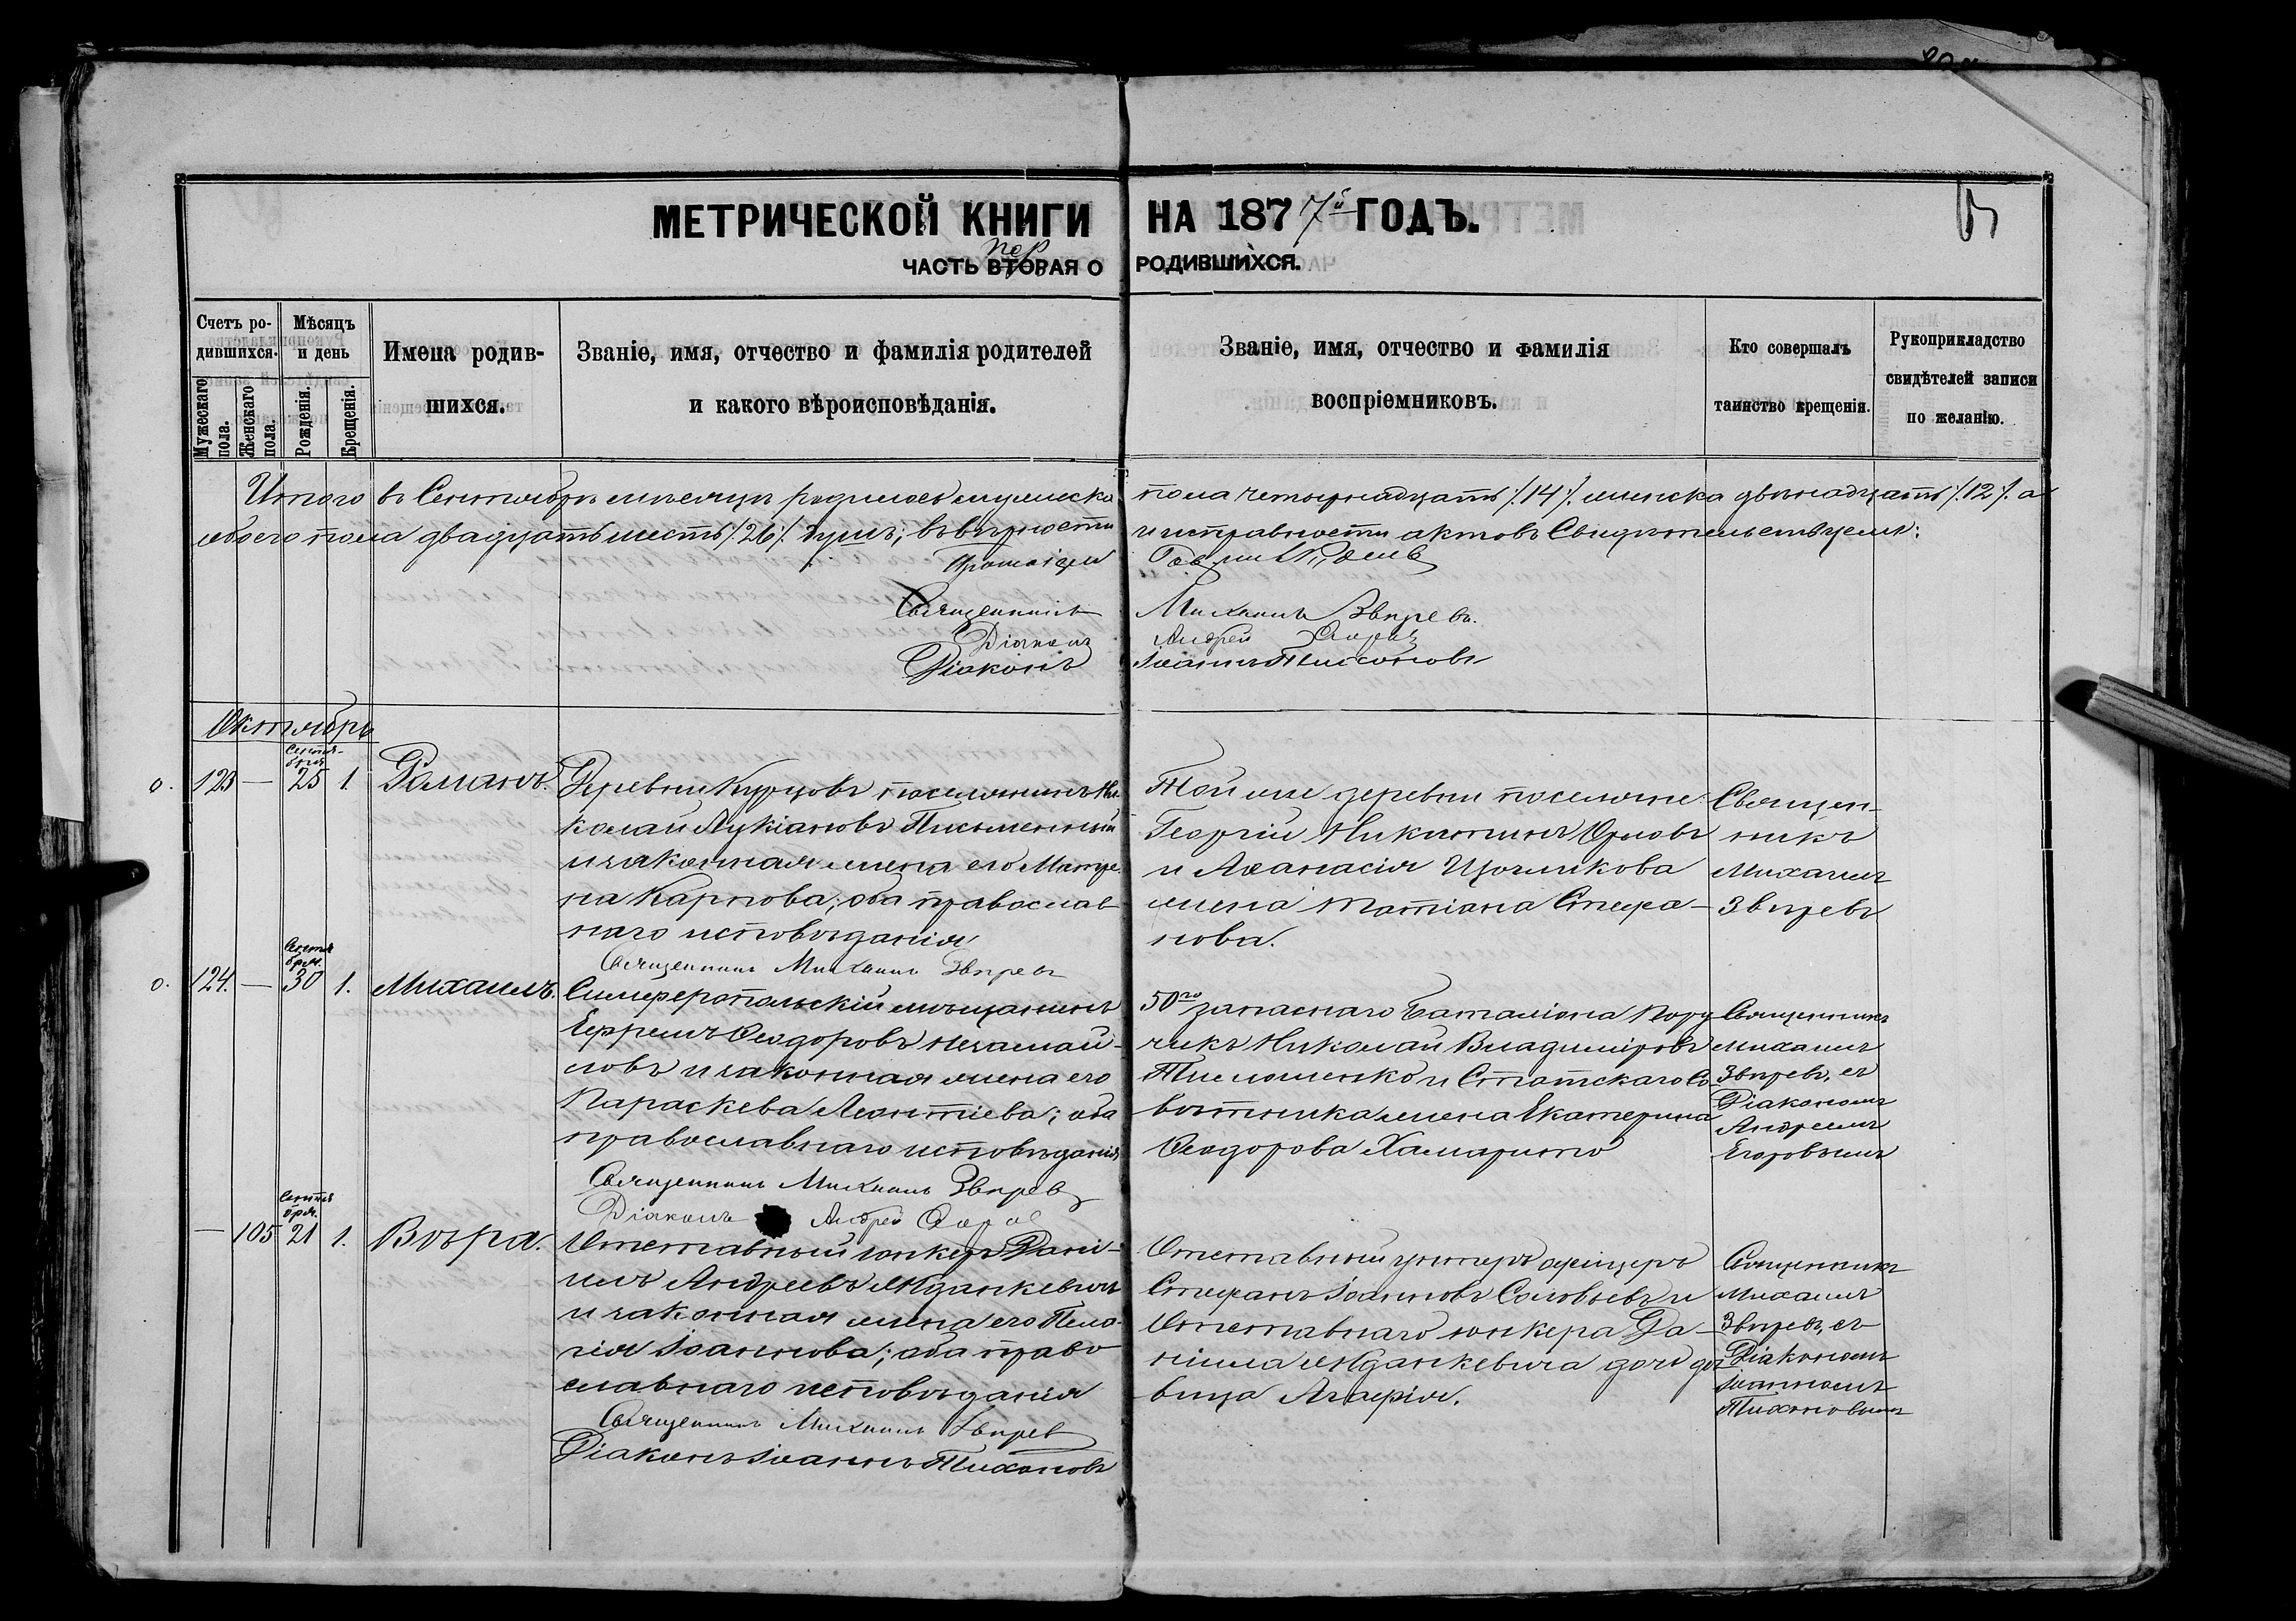 МЕТРИЧЕСКОЙ КНИГИ НА 1877й ГОДЪ.
пер
ЧАСТЬ ВТОРАЯ О РОДИВШИХСЯ.
Счетъ родившихся.
Мужескаго пола.
Женскаго пола.
Мѣсяцъ и день
Рожденія.
Крещенія.
Имена родившихся.
Званіе, имя, отчество и фамилія родителей
и какого вѣроисповѣданія.
Званіе, имя, отчество и фамилія
воспріемниковъ.
Кто совершалъ
таинство крещенія.
Рукоприкладство
свидѣтелей записи
по желанію.
Итого въ Сентябрѣ мѣсяцѣ родилось мужеска пола четырнадцать ·/.14·/. женска двѣнадцать ·/.12·/. а
обоего пола двадцать шесть ·/.26·/. душъ; въ вѣрности и исправности актовъ Свидѣтельствуемъ:
Протоіерей
Священникъ Михаилъ Звѣревъ.
Діаконъ Андрей
Діаконъ Іоаннъ Тихоновъ
Октябрь
Сентября
123 — 25 1. Романъ.
Деревни Курцовъ поселянинъ Ни-
колай Лукіановъ Письменный
и законная жена его Матре-
на Карпова; оба православ-
наго исповѣданія
Священникъ Михаилъ Звѣревъ
Той же деревни поселяне
Георгій Никитинъ Орловъ
и Аѳанасія
жена Татіана Стефа-
нова.
Священ-
никъ
Михаилъ
Звѣревъ
Сентября.
124. — 30 1. Михаилъ.
Симферопольскій мѣщанинъ
Ефремъ Ѳеодоровъ
и законная жена его
Параскева Леонтіева; оба
православнаго исповѣданія
Священникъ Михаилъ Звѣревъ
Діаконъ Андрей
50го запаснаго баталіона пору-
чикъ Николай Владиміровъ
и Статскаго Со-
вѣтника жена Екатерина
Ѳеодорова
Священникъ
Михаилъ
Звѣревъ, съ
Діакономъ
Андреемъ
Егоровымъ
Сентября.
— 105 21 1. Вѣра.
Отставный юнкеръ Дані-
илъ Андреевъ Жданкевичъ
и законная жена его Пела-
гія Іоаннова; оба право
славнаго исповѣданія
Священникъ Михаилъ Звѣревъ
Діаконъ Іоаннъ Тихоновъ
Отставный унтеръ офицеръ
Стефанъ Іоанновъ Соловьевъ и
Отставнаго юнкера Да-
ніила Жданкевича дочь дѣ-
вица Агафія.
Священникъ
Михаилъ
Звѣревъ, съ
Діакономъ
Іоанномъ
Тихоновымъ